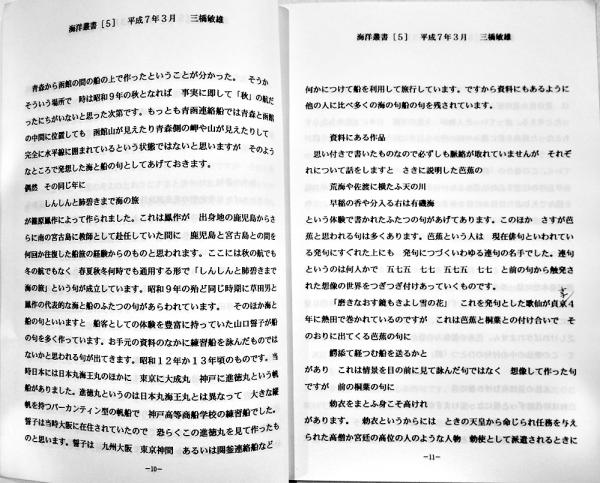 海洋叢書［5］　平成7年3月　三橋敏雄
青森から函館の間の船の上で作ったということが分かった。　そうか
そういう場所で　時は昭和9年の秋となれば　事実に即して「秋」の航だ
ったにちがいないと思った次第です。もっとも青函連絡船では青森と函館
の中間に位置しても　函館山が見えたり青森側の岬や山が見えたりして
完全に水平線に囲まれているという状態ではないと思いますが　そのよう
なところで発想した海と船の句としてあげておきます。
偶然　その同じ年に
しんしんと肺碧きまで海の旅
が篠原鳳作によって作られました。これは鳳作が　出身地の鹿児島からさ
らに南の宮古島に教師として赴任していた間に　鹿児島と宮古島との間を
何回か往復した船旅の経験からのものと思われます。ここには秋の航でも
冬の航でもなく　春夏秋冬何時でも通用する形で「しんしんと肺碧きまで
海の旅」という句が成立しています。昭和9年の殆ど同じ時期に草田男と
鳳作の代表的な海と船のふたつの句があらわれています。　そのほか海と
船の句といいますと　船客としての体験を豊富に持っていた山口誓子が船
の句を多く作っています。お手元の資料のなかに練習船を詠んだものでは
ないかと思われる句が出てきます。昭和12年か13年頃のものです。当
時日本には日本丸海王丸のほかに　東京に大成丸　神戸に進徳丸という帆
船がありました。進徳丸というのは日本丸海王丸とは異なって　大きな縦
帆を持つバーカンティン型の帆船で　神戸高等商船学校の練習船でした。
誓子は当時大阪に在住されていたので　恐らくこの進徳丸を見て作ったも
のと思います。誓子は　九州大阪　東京神間　あるいは関釜連絡船など
−10−
海洋叢書［5］　平成7年3月　三橋敏雄
何かにつけて船を利用して旅行しています。ですから資料にもあるように
他の人に比べ多くの海の句船の句を残されています。
資料にある作品
思い付きで書いたものなので必ずしも脈絡が取れていませんが　それぞ
れについて話をしますと　さきに説明した芭蕉の
荒海や佐渡に横たふ天の川
早稲の香や分入る右は有磯海
という体験で書かれたふたつの句があげてあります。このほか　さすが芭
蕉と思われる句は多くあります。芭蕉という人は　現在俳句といわれてい
る発句にすぐれた上にも　発句につづくいわゆる連句の名手でした。連句
というのは何人かで　五七五　七七　五七五　七七　と前の句から触発さ
れた想像の世界をつぎつぎ付けあっていくものです。
「磨きなおす鏡もきよし雪の花」　これを発句とした歌仙が貞享4
年に熱田で巻かれているのですが　これは芭蕉と桐葉との付け合いで　そ
のおりに出てくる芭蕉の句に
鰐添て経つむ船を送るかと
があり　これは情景を目の前に見て詠んだ句ではなく　想像して作った句
ですが　前の桐葉の句に
勅衣をまとふ身こそ高けれ
があります。　勅衣というからには　ときの天皇から命じられ任務を与え
られた高僧か宮廷の高位の人のような人物　勅使として派遣されるときに
−11−